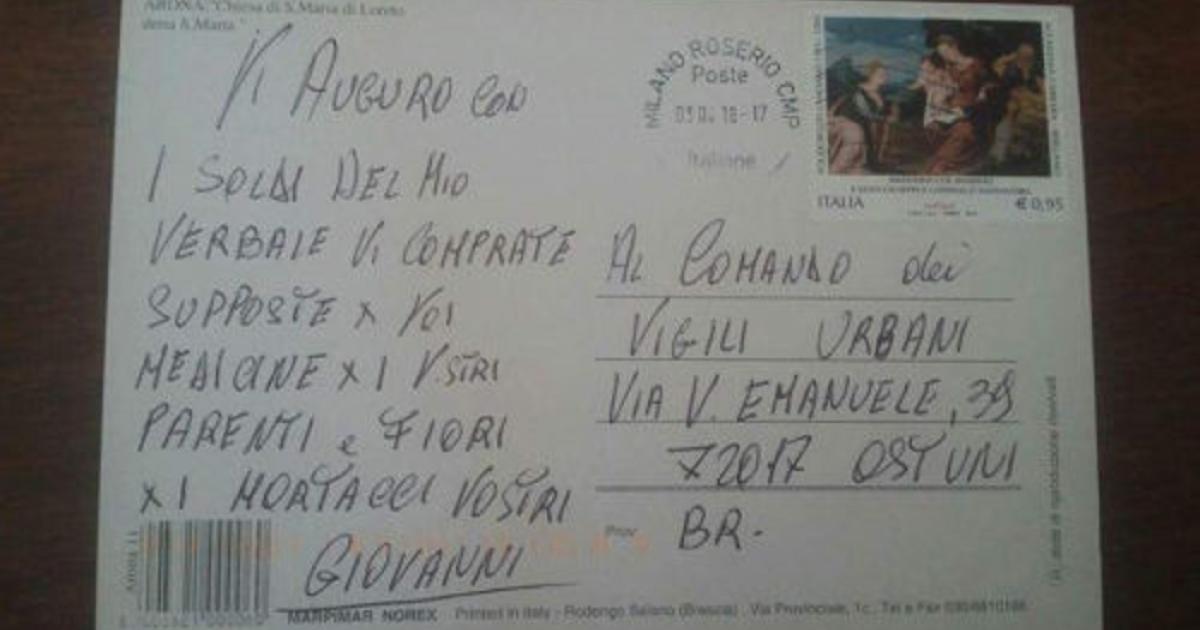 ARONA, "Chiesa di S. Maria di Loreto
VI AUGURO CON
I SOLDI DEL MIO
VERBALE VI COMPRATE
SUPPOSTE X VOI
MEDICINE X I V.STRI
PARENTI e FIORI
X I MORTACCI VOSTRI
GIOVANNI
MILANO ROSERIO CMP
Poste
18-17
Italiane
ITALIA
€ 0,95
AL COMANDO dei
VIGILI URBANI
VIA V. EMANUELE, 39
72017 OSTUNI
Prov.
BR.
MARPIMAR NOREX Printed in Italy - Rodengo Saiano (Brescia) Via Provinciale, 1c, Tel e Fax
riproduzione riservati